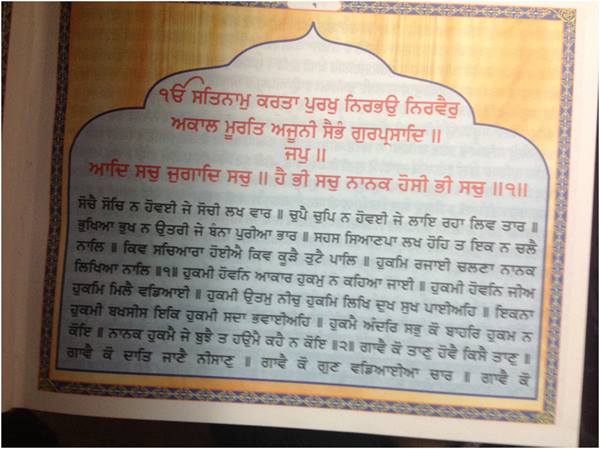 ੧
ੴ ਸਤਿਨਾਮੁ ਕਰਤਾ ਪੁਰਖੁ ਨਿਰਭਉ ਨਿਰਵੈਰੁ
ਅਕਾਲ ਮੂਰਤਿ ਅਜੂਨੀ ਸੈਭੰ ਗੁਰਪ੍ਰਸਾਦਿ ॥
ਜਪੁ ॥
ਆਦਿ ਸਚੁ ਜੁਗਾਦਿ ਸਚੁ ॥ ਹੈ ਭੀ ਸਚੁ ਨਾਨਕ ਹੋਸੀ ਭੀ ਸਚੁ ॥੧॥
ਸੋਚੈ ਸੋਚਿ ਨ ਹੋਵਈ ਜੇ ਸੋਚੀ ਲਖ ਵਾਰ ॥ ਚੁਪੈ ਚੁਪਿ ਨ ਹੋਵਈ ਜੇ ਲਾਇ ਰਹਾ ਲਿਵ ਤਾਰ ॥
ਭੁਖਿਆ ਭੁਖ ਨ ਉਤਰੀ ਜੇ ਬੰਨਾ ਪੁਰੀਆ ਭਾਰ ॥ ਸਹਸ ਸਿਆਣਪਾ ਲਖ ਹੋਹਿ ਤ ਇਕ ਨ ਚਲੈ
ਨਾਲਿ ॥ ਕਿਵ ਸਚਿਆਰਾ ਹੋਈਐ ਕਿਵ ਕੂੜੈ ਤੁਟੈ ਪਾਲਿ ॥ ਹੁਕਮਿ ਰਜਾਈ ਚਲਣਾ ਨਾਨਕ
ਲਿਖਿਆ ਨਾਲਿ ॥੧॥ ਹੁਕਮੀ ਹੋਵਨਿ ਆਕਾਰ ਹੁਕਮੁ ਨ ਕਹਿਆ ਜਾਈ ॥ ਹੁਕਮੀ ਹੋਵਨਿ ਜੀਅ
ਹੁਕਮਿ ਮਿਲੈ ਵਡਿਆਈ ॥ ਹੁਕਮੀ ਉਤਮੁ ਨੀਚੁ ਹੁਕਮਿ ਲਿਖਿ ਦੁਖ ਸੁਖ ਪਾਈਅਹਿ ॥ ਇਕਨਾ
ਹੁਕਮੀ ਬਖਸੀਸ ਇਕਿ ਹੁਕਮੀ ਸਦਾ ਭਵਾਈਅਹਿ ॥ ਹੁਕਮੈ ਅੰਦਰਿ ਸਭੁ ਕੋ ਬਾਹਰਿ ਹੁਕਮ ਨ
ਕੋਇ ॥ ਨਾਨਕ ਹੁਕਮੈ ਜੇ ਬੁਝੈ ਤ ਹਉਮੈ ਕਹੈ ਨ ਕੋਇ ॥੨॥ ਗਾਵੈ ਕੋ ਤਾਣੁ ਹੋਵੈ ਕਿਸੈ ਤਾਣੁ ॥
ਗਾਵੈ ਕੋ ਦਾਤਿ ਜਾਣੈ ਨੀਸਾਣੁ ॥ ਗਾਵੈ ਕੋ ਗੁਣ ਵਡਿਆਈਆ ਚਾਰ ॥ ਗਾਵੈ ਕੋ